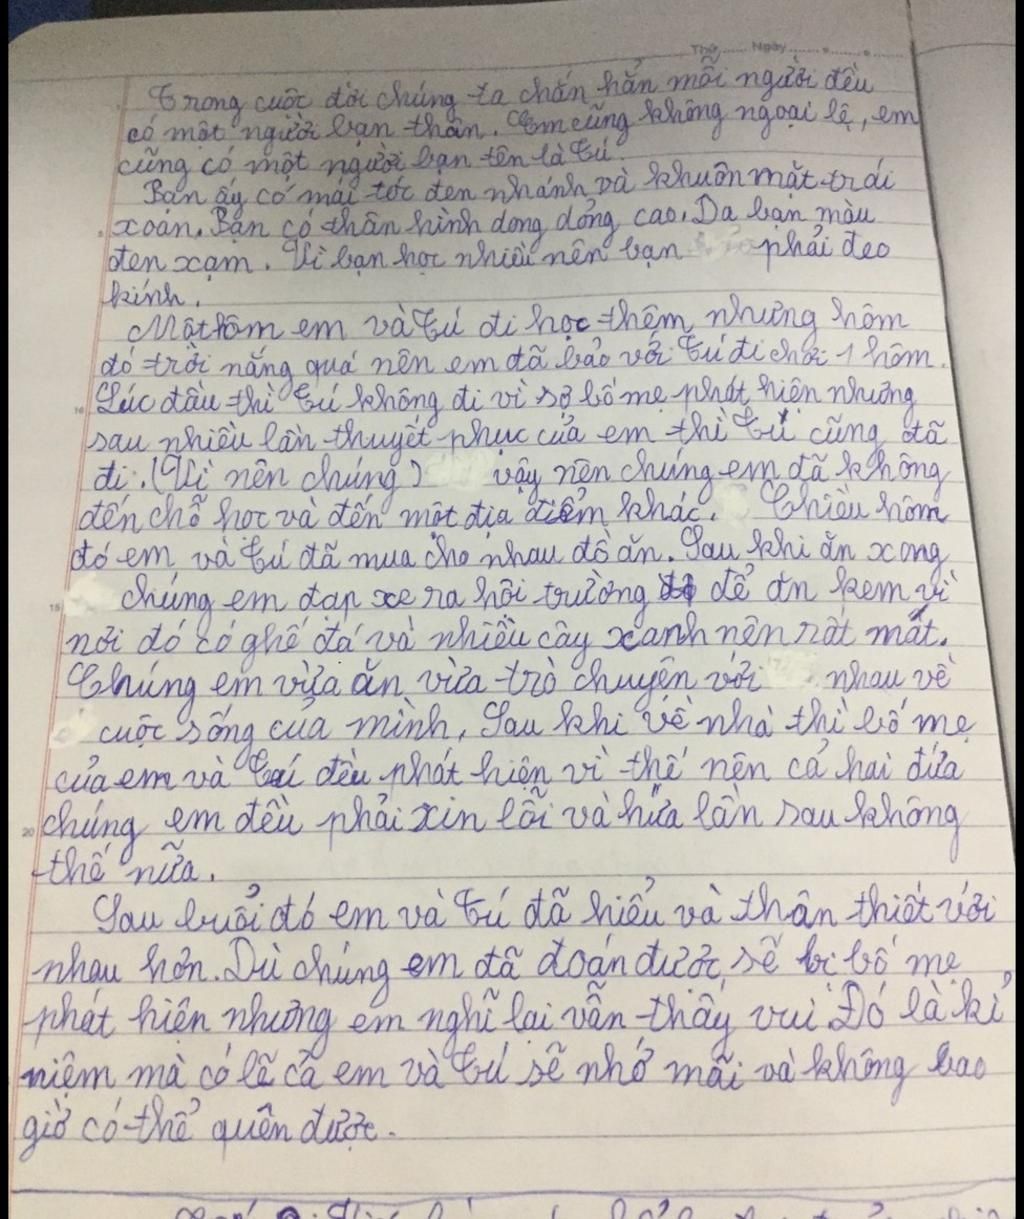 Thứ ....... Ngày ....... . ....... .
Trong cuộc đời chúng ta chắn hẳn mỗi người đều
có một người bạn thân. Em cũng không ngoại lệ, em
cũng có một người bạn tên là Tú.
Bạn ấy có mái tóc đen nhánh và khuôn mặt trái
xoán. Bạn có thân hình dong dỏng cao. Da bạn màu
đen xạm. Vì bạn học nhiều nên bạn phải đeo
kính.
Một hôm em và Tú đi học thêm nhưng hôm
đó trời nắng quá nên em đã bảo với Tú đi chơi 1 hôm.
10 Lúc đầu thì Tú không đi vì sợ bố mẹ phát hiện nhưng
sau nhiều lần thuyết phục của em thì Tú cũng đã
đi. (Vì nên chúng) vậy nên chúng em đã không
đến chỗ học và đến một địa điểm khác. Chiều hôm
đó em và Tú đã mua cho nhau đồ ăn. Sau khi ăn xong
15 chúng em đạp xe ra hội trường để ăn kem vì
nơi đó có ghế đá và nhiều cây xanh nên rất mát.
Chúng em vừa ăn vừa trò chuyện với nhau về
cuộc sống của mình, Sau khi về nhà thì bố mẹ
của em và Tú đều phát hiện vì thế nên cả hai đứa
20 chúng em đều phải xin lỗi và hứa lần sau không
thế nữa.
Sau buổi đó em và Tú đã hiểu và thân thiết với
nhau hơn. Dù chúng em đã đoán được sẽ bị bố mẹ
phát hiện nhưng em nghĩ lại vẫn thấy vui. Đó là kỉ
niệm mà có lẽ cả em và Tú sẽ nhớ mãi và không bao
giờ có thể quên được.